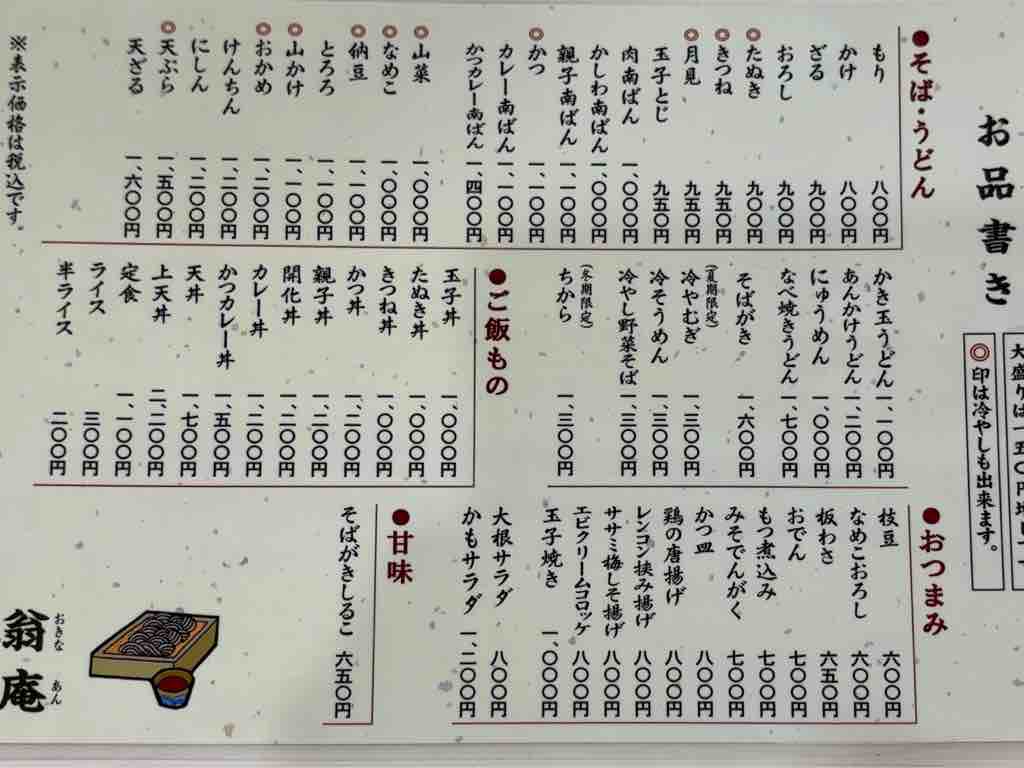 お品書き
◎印は冷やしも出来ます。
●そば・うどん
もり 八〇〇円
かけ 八〇〇円
ざる 九〇〇円
おろし 九〇〇円
◎たぬき 九〇〇円
◎きつね 九五〇円
◎月見 九五〇円
玉子とじ 九五〇円
肉南ばん 一、〇〇〇円
かしわ南ばん 一、〇〇〇円
親子南ばん 一、一〇〇円
◎かつ 一、一〇〇円
カレー南ばん 一、一〇〇円
かつカレー南ばん 一、四〇〇円
◎山菜 一、〇〇〇円
◎なめこ 一、〇〇〇円
◎納豆 一、一〇〇円
とろろ 一、一〇〇円
◎山かけ 一、一〇〇円
◎おかめ 一、二〇〇円
けんちん 一、二〇〇円
にしん 一、二〇〇円
◎天ぷら 一、五〇〇円
天ざる 一、六〇〇円
※表示価格は税込です。
かき玉うどん 一、一〇〇円
あんかけうどん 一、二〇〇円
にゅうめん 一、〇〇〇円
なべ焼きうどん 一、七〇〇円
そばがき 一、六〇〇円
(夏期限定)
冷やむぎ 一、三〇〇円
冷そうめん 一、三〇〇円
冷やし野菜そば 一、三〇〇円
(冬期限定)
ちから 一、三〇〇円
●ご飯もの
玉子丼 一、〇〇〇円
たぬき丼 一、〇〇〇円
きつね丼 一、〇〇〇円
かつ丼 一、二〇〇円
親子丼 一、二〇〇円
開化丼 一、二〇〇円
カレー丼 一、二〇〇円
かつカレー丼 一、五〇〇円
天丼 一、七〇〇円
上天丼 二、二〇〇円
定食 一、一〇〇円
ライス 三〇〇円
半ライス 二〇〇円
●おつまみ
枝豆 六〇〇円
なめこおろし 六〇〇円
板わさ 六五〇円
おでん 七〇〇円
もつ煮込み 七〇〇円
みそでんがく 七〇〇円
かつ皿 八〇〇円
鶏の唐揚げ 八〇〇円
レンコン挟み揚げ 八〇〇円
ササミ梅しそ揚げ 八〇〇円
エビクリームコロッケ 八〇〇円
玉子焼き 一、〇〇〇円
大根サラダ 八〇〇円
かもサラダ 一、二〇〇円
●甘味
そばがきしるこ 六五〇円
翁庵
おきなあん